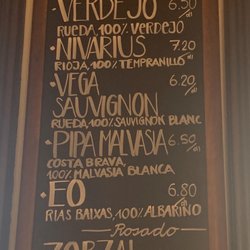 VERDEJO 6.50
RUEDA, 100% VERDEJO
NIVARIUS 7.20
RIOJA, 100% TEMPRANILLO
VEGA 6.20
SAUVIGNON
RUEDA, 100% SAUVIGNON BLANC
PIPA MALVASIA 6.50
COSTA BRAVA,
100% MALVASIA BLANCA
EO 6.80
RIAS BAIXAS, 100% ALBARIÑO
Rosado
ZORZAL